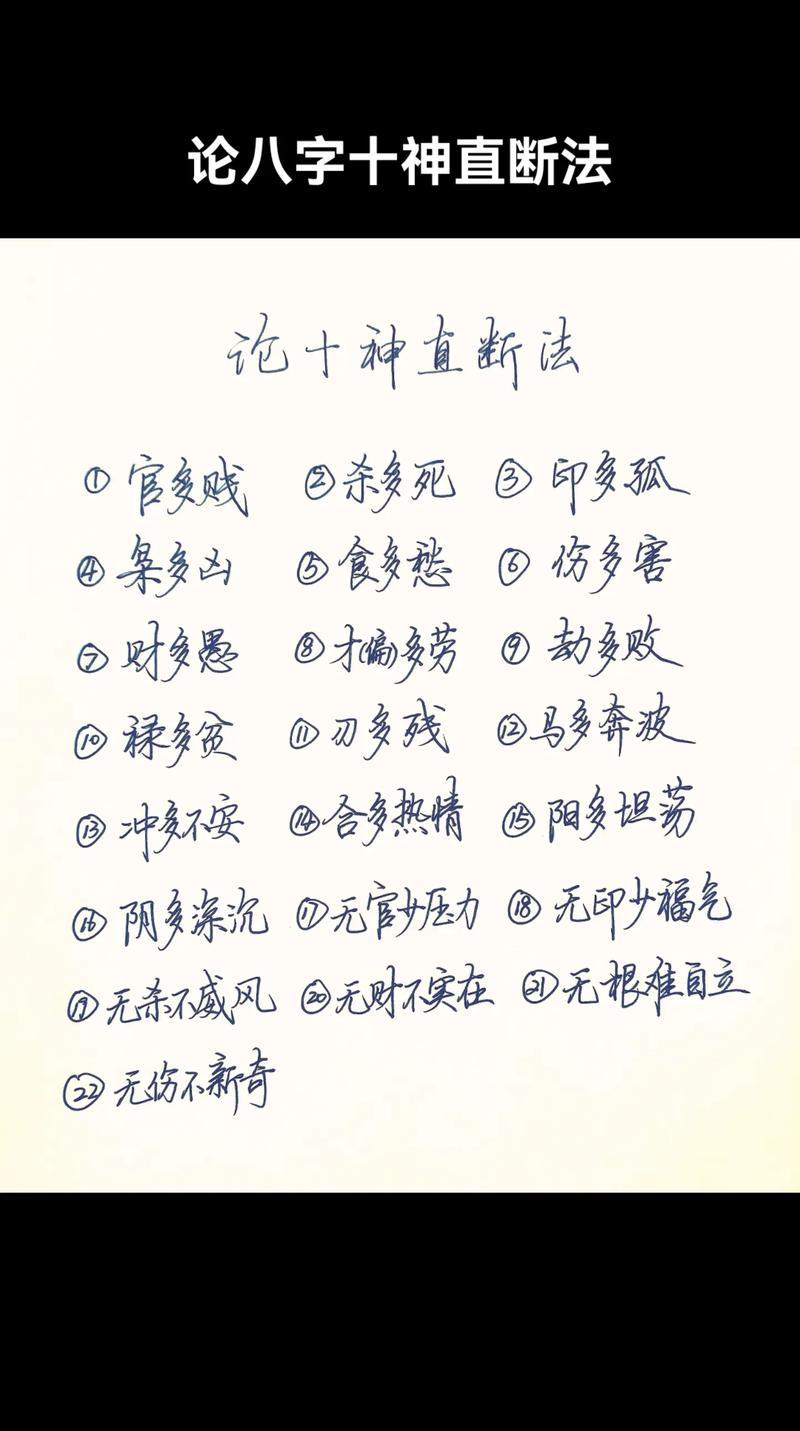 论八字十神直断法
论十神直断法
① 官多贱 ② 杀多死 ③ 印多孤
④ 枭多凶 ⑤ 食多愁 ⑥ 伤多害
⑦ 财多愚 ⑧ 才(偏)多劳 ⑨ 劫多败
⑩ 禄多贫 ⑪ 刃多残 ⑫ 马多奔波
⑬ 冲多不安 ⑭ 合多热情 ⑮ 阳多坦荡
⑯ 阴多深沉 ⑰ 无官少压力 ⑱ 无印少福气
⑲ 无杀不威风 ⑳ 无财不实在 ㉑ 无根难自立
㉒ 无伤不新奇